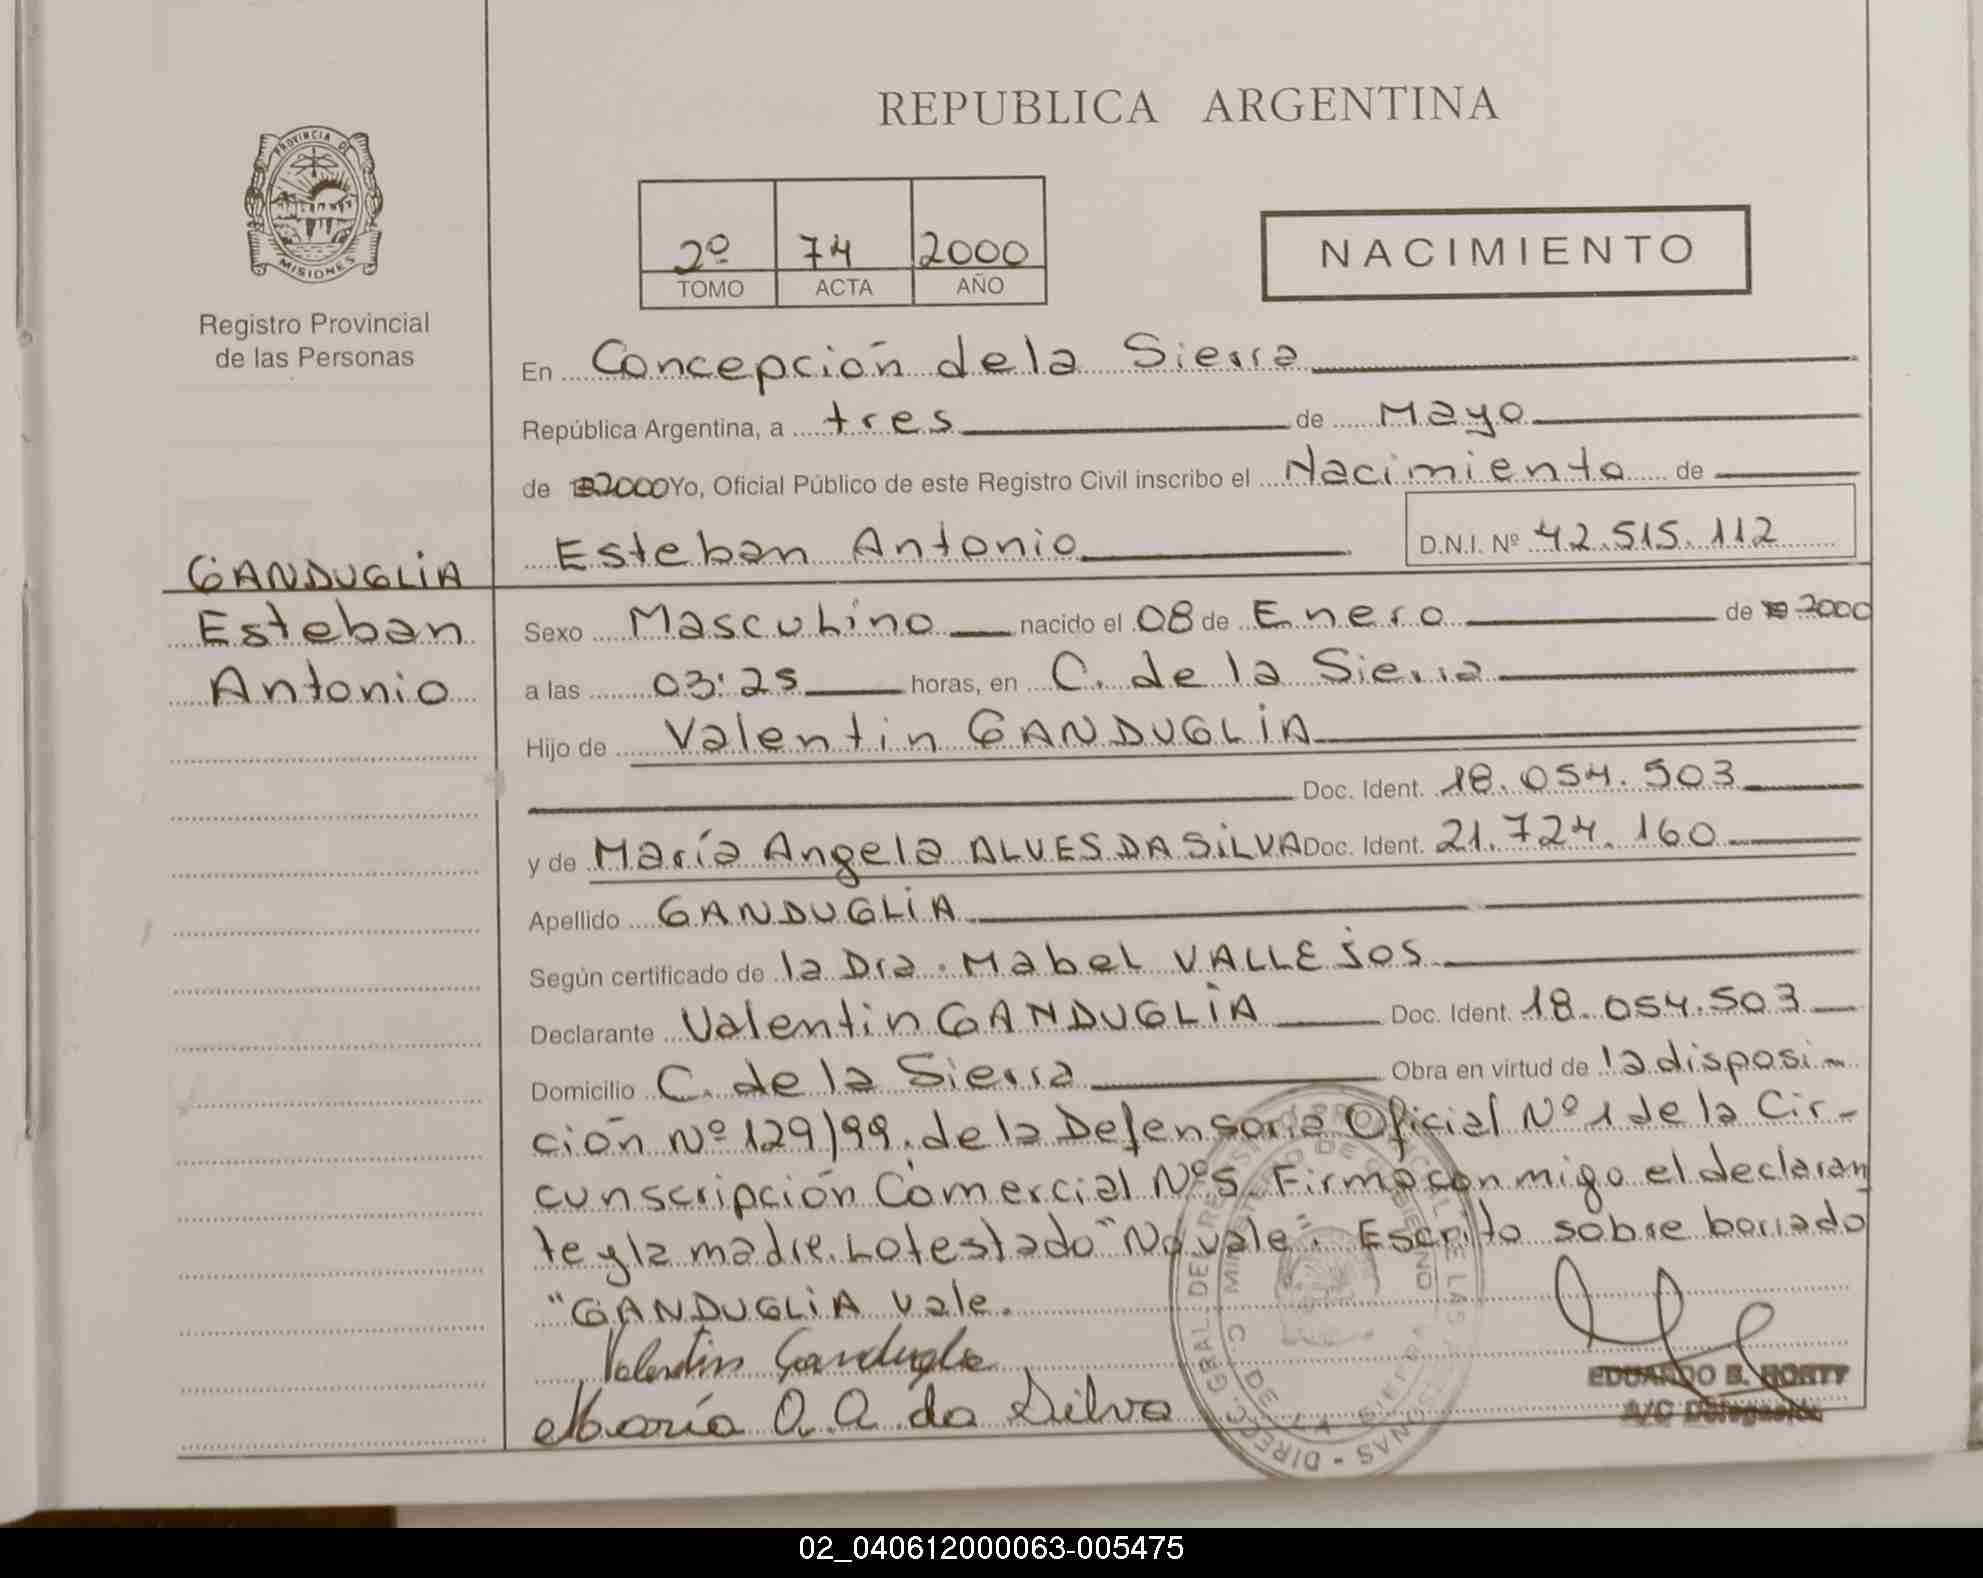 REPUBLICA ARGENTINA
PROVINCIA DE
MISIONES
Registro Provincial
de las Personas
2º 74 2000
TOMO ACTA AÑO
NACIMIENTO
En Concepción de la Sierra
República Argentina, a tres de Mayo
de 2000 Yo, Oficial Público de este Registro Civil inscribo el Nacimiento de
Esteban Antonio D.N.I. Nº 42.515.112
GANDUGLIA
Esteban
Antonio
Sexo Masculino nacido el 08 de Enero de 2000
a las 03:25 horas, en C. de la Sierra
Hijo de Valentin GANDUGLIA
Doc. Ident. 18.054.503
y de María Angela ALVES DA SILVA Doc. Ident. 21.724.160
Apellido GANDUGLIA
Según certificado de la Dra. Mabel VALLEJOS
Declarante Valentin GANDUGLIA Doc. Ident. 18.054.503
Domicilio C. de la Sierra Obra en virtud de la disposi-
ción Nº 129/99. de la Defensoria Oficial Nº 1 de la Cir-
cunscripción Comercial Nº 5. Firma con migo el declaran
te y la madre. Lo testado "No vale". Escrito sobre borrado
"GANDUGLIA vale.
Valentin Ganduglia
María A. A. da Silva
EDUARDO B. HORTT
A/C Delegación
02_040612000063-005475